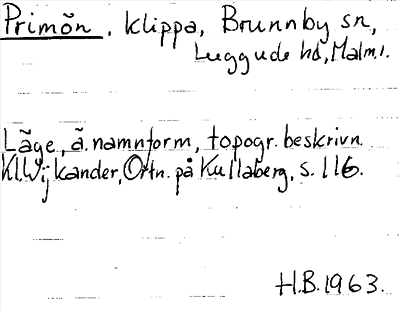 Primön, klippa, Brunnby sn,
Luggude hd, Malm.l.
Läge, ä. namnform, topogr. beskrivn.
Kl.Wijkander, Ortn. på Kullaberg, s. 116.
H.B. 1963.